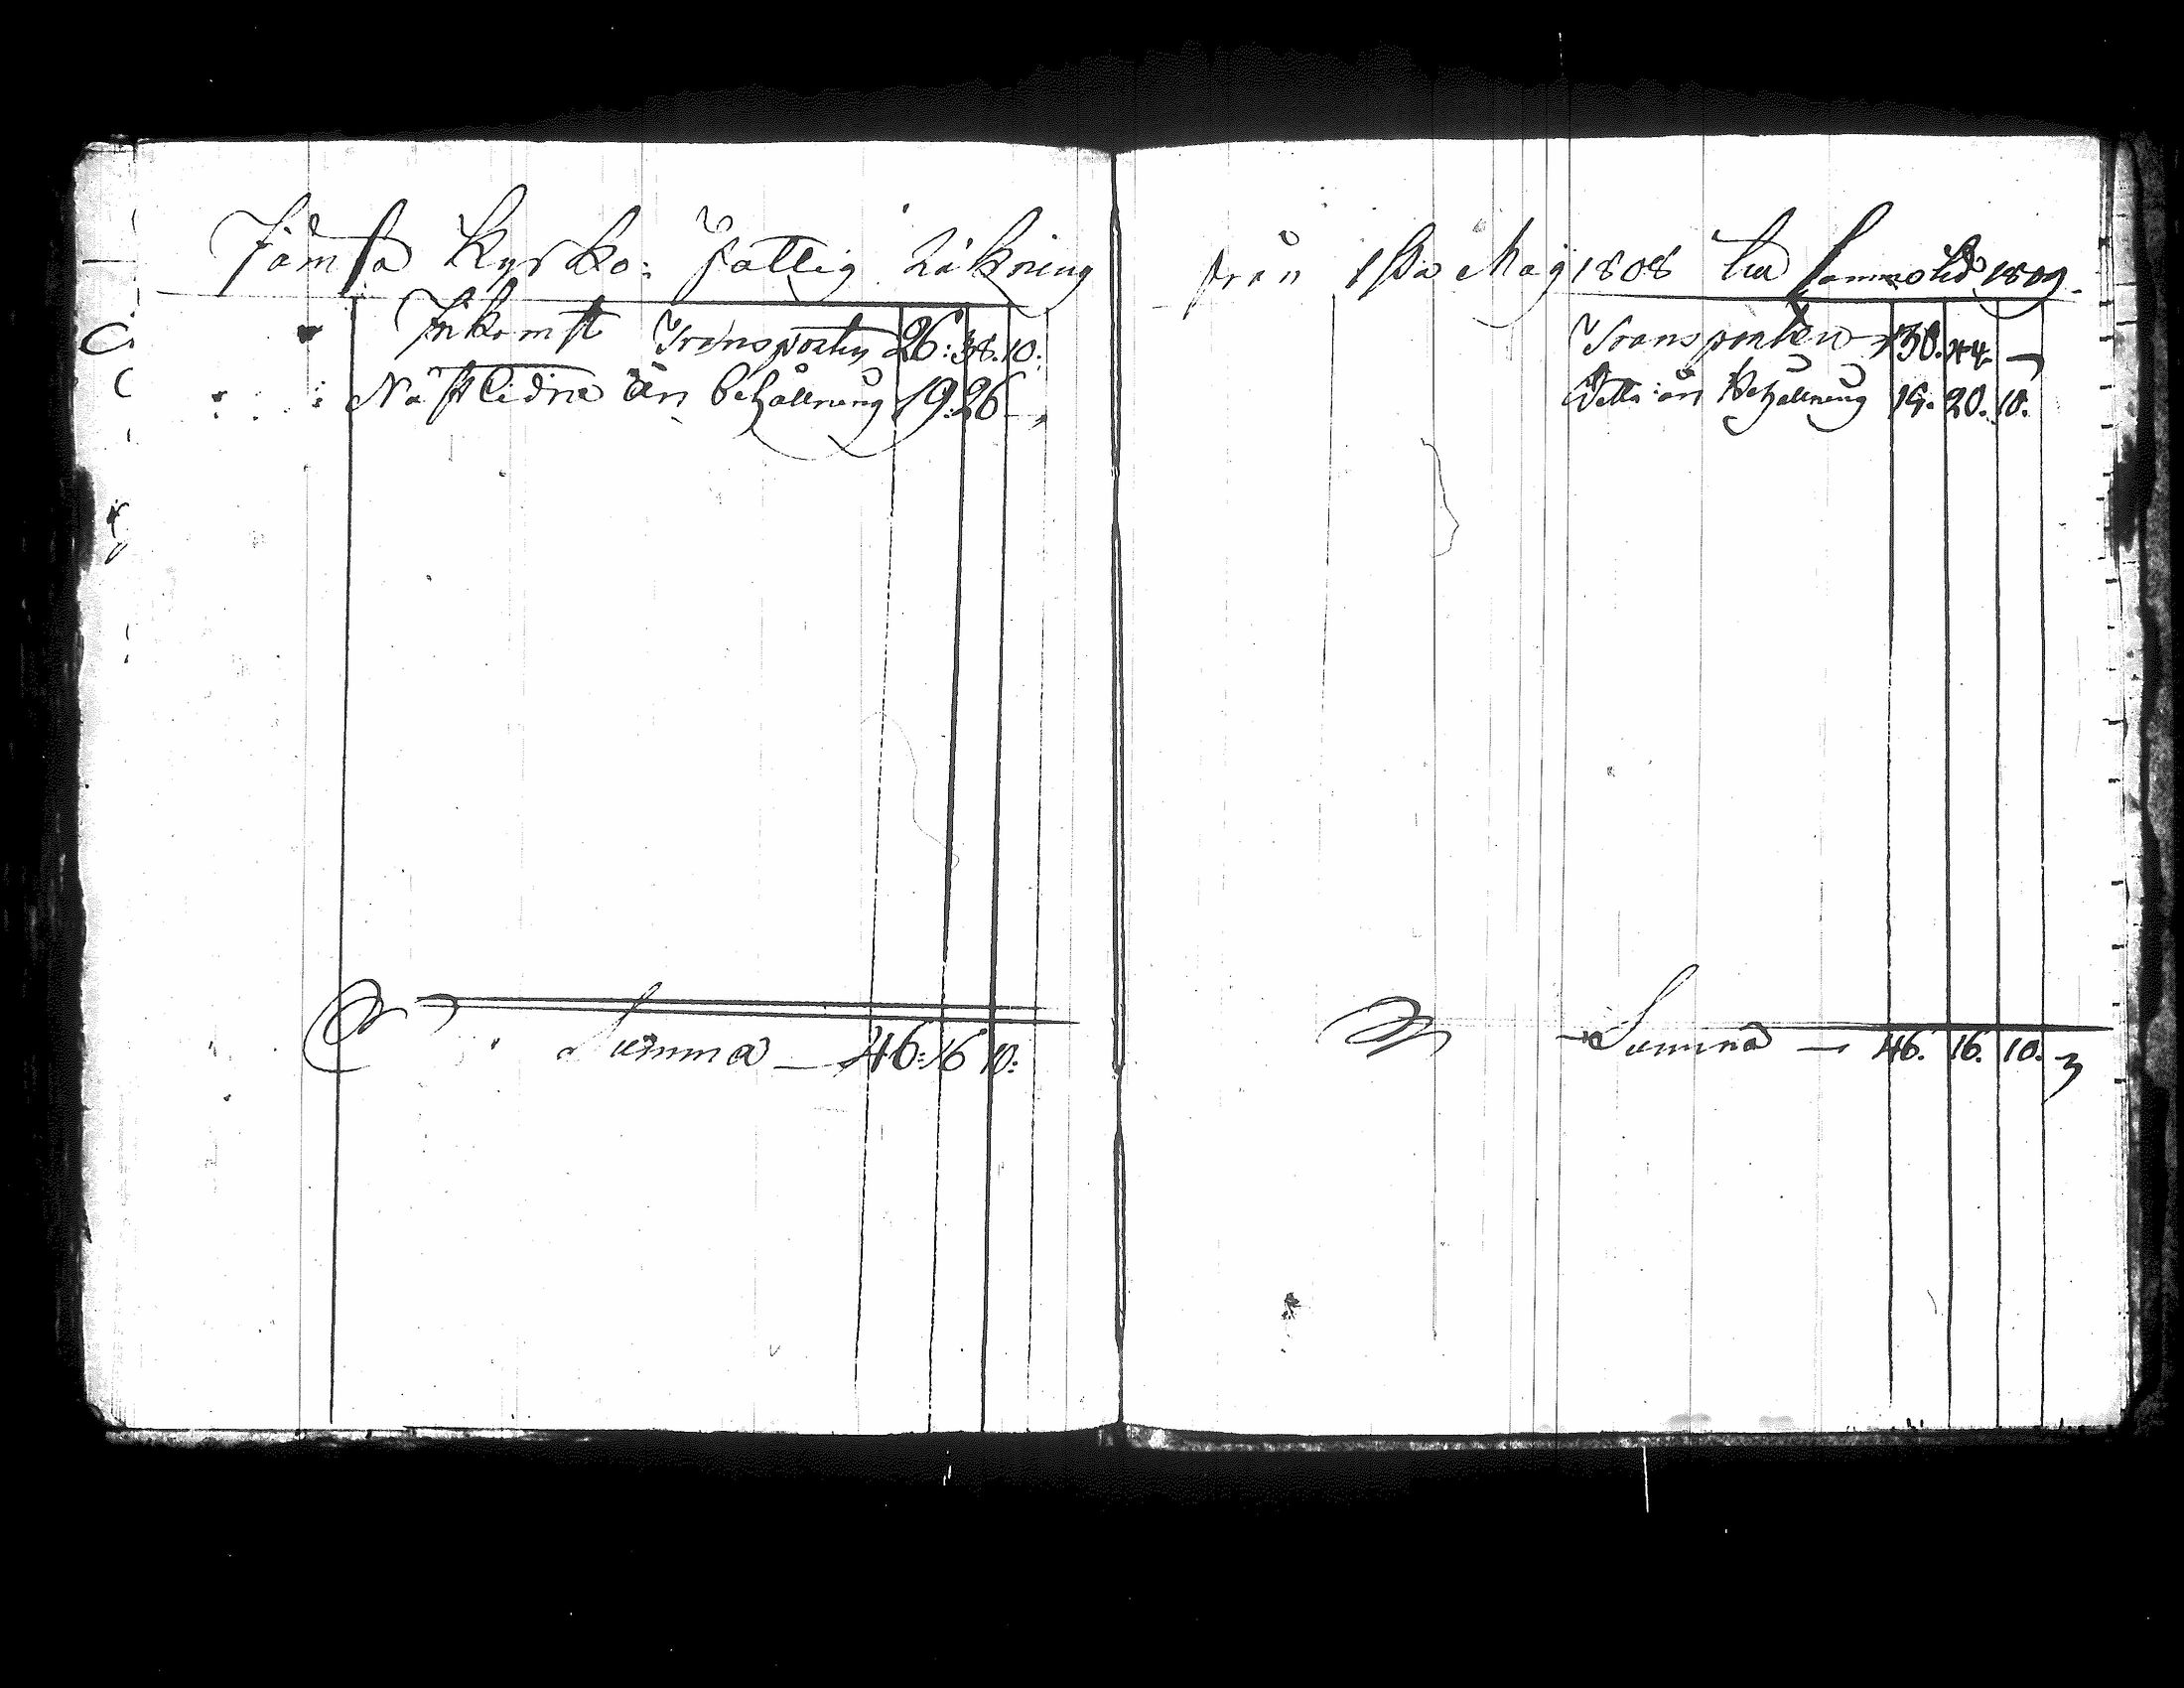 Jämsä Kyrko: fattig Räkning
Inkomst Transporten 26: 38. 10:
Nästledne års behållning 19: 26 —
Summa — 46: 16 10:
från 1sta Maÿ 1808 till samma tid 1809.
Transporten 44 —
Detta års Behållning 20. 10.
Summa — 46. 16. 10.